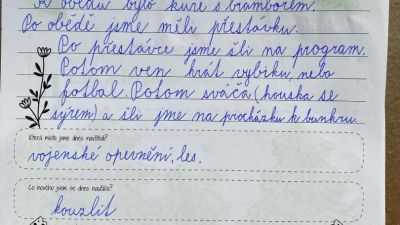 K obědu bylo kuře s bramborem.
Po obědě jsme měli přestávku.
Po přestávce jsme šli na program.
Potom ven hrát vybiku, nebo
fotbal. Potom sváča (houska se
sýrem) a šli jme na procházku k bunkru.
Která místa jsme dnes navštívili?
vojenské opevnění, les.
Co nového jsem se dnes naučil/a?
kouzlit